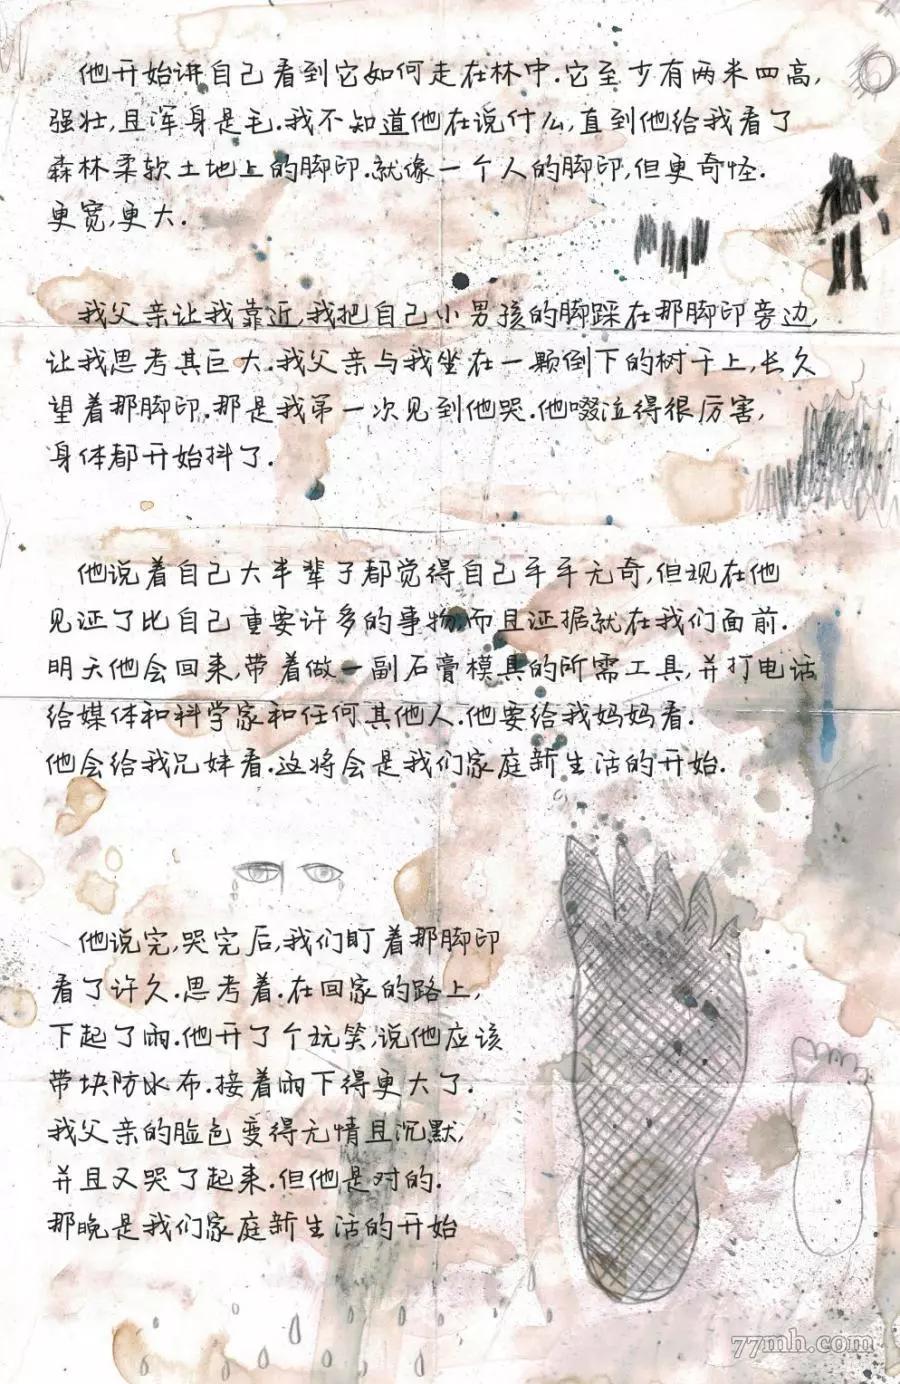 他开始讲自己看到它如何走在林中.它至少有两米四高,
强壮,且浑身是毛.我不知道他在说什么,直到他给我看了
森林柔软土地上的脚印.就像一个人的脚印,但更奇怪.
更宽,更大.
我父亲让我靠近,我把自己小男孩的脚踩在那脚印旁边,
让我思考其巨大.我父亲与我坐在一颗倒下的树干上,长久
望着那脚印.那是我第一次见到他哭.他啜泣得很厉害,
身体都开始抖了.
他说着自己大半辈子都觉得自己平平无奇,但现在他
见证了比自己重要许多的事物,而且证据就在我们面前.
明天他会回来,带着做一副石膏模具的所需工具,并打电话
给媒体和科学家和任何其他人.他要给我妈妈看.
他会给我兄妹看.这将会是我们家庭新生活的开始.
他说完,哭完后,我们盯着那脚印
看了许久.思考着.在回家的路上,
下起了雨.他开了个玩笑,说他应该
带块防水布.接着雨下得更大了.
我父亲的脸色变得无情且沉默,
并且又哭了起来.但他是对的.
那晚是我们家庭新生活的开始
77mh.com